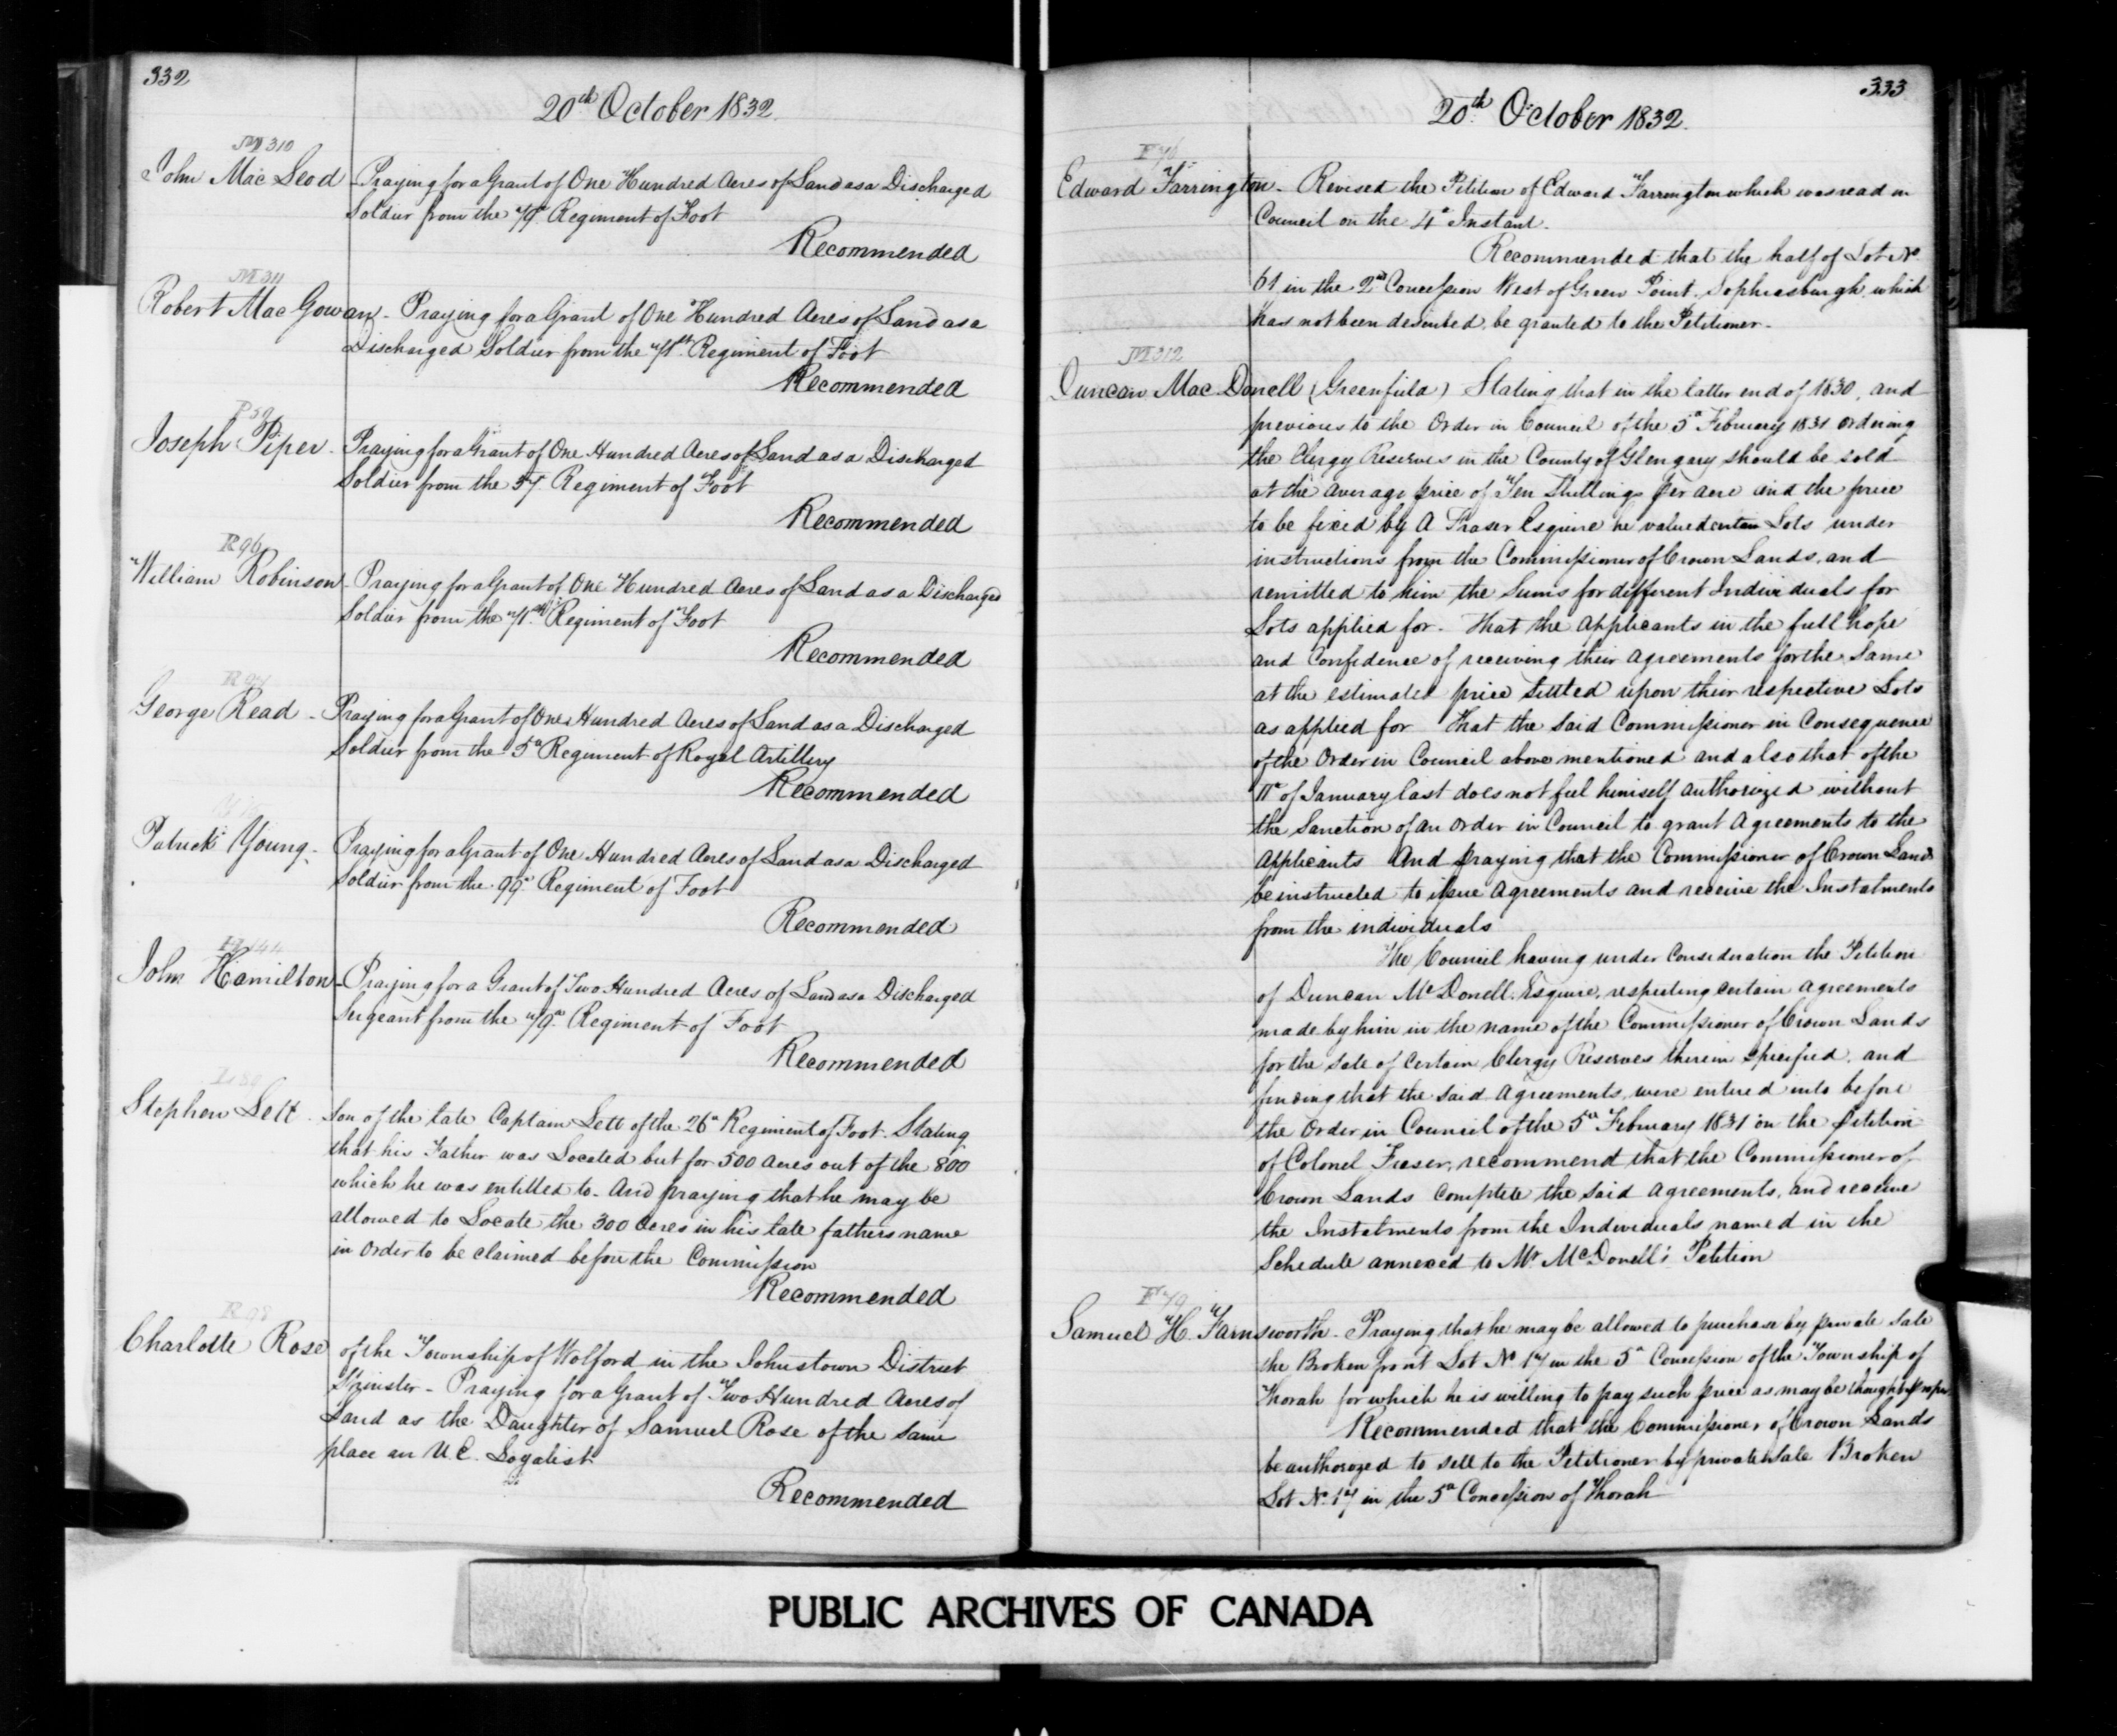 332
20th October 1832.
M 310
John Mac Leod - Praying for a Grant of One Hundred Acres of Land as a Discharged
Soldier from the 79th Regiment of Foot
Recommended
M 311
Robert Mac Gowan - Praying for a Grant of One Hundred Acres of Land as a
Discharged Soldier from the 71st Regiment of Foot
Recommended
P 59
Joseph Piper - Praying for a Grant of One Hundred Acres of Land as a Discharged
Soldier from the 57 Regiment of Foot
Recommended
R 96
William Robinson - Praying for a Grant of One Hundred Acres of Land as a Discharged
Soldier from the 71st Regiment of Foot
Recommended
R 97
George Read - Praying for a Grant of One Hundred Acres of Land as a Discharged
Soldier from the 5th Regiment of Royal Artillery
Recommended
Patrick Young - Praying for a Grant of One Hundred Acres of Land as a Discharged
Soldier from the 99th Regiment of Foot
Recommended
H 144
John Hamilton - Praying for a Grant of Two Hundred Acres of Land as a Discharged
Sergeant from the 79th Regiment of Foot
Recommended
Stephen Lett - Son of the late Captain Lett of the 26th Regiment of Foot. Stating
that his Father was Located but for 500 Acres out of the 800
which he was entitled to. And praying that he may be
allowed to Locate the 300 Acres in his late fathers name
in order to be claimed before the Commission
Recommended
R 98
Charlotte Rose of the Township of Wolford in the Johnstown District
Spinster - Praying for a Grant of Two Hundred Acres of
Land as the Daughter of Samuel Rose of the same
place an U.E. Loyalist
Recommended
333
20th October 1832.
Edward Farrington - Revised the Petition of Edward Farrington which was read in
Council on the 4th Instant.
Recommended that the half of Lot No
61 in the 2nd Concession West of Green Point, Sophiasburgh, which
has not been described be granted to the Petitioner.
M 312
Duncan Mac Donell (Greenfield) Stating that in the latter end of 1830, and
previous to the Order in Council of the 5th February 1831 ordering
the Clergy Reserves in the County of Glengary should be sold
at the average price of Ten Shillings per acre and the price
to be fixed by A Fraser Esquire he valued certain Lots under
instructions from the Commissioner of Crown Lands, and
remitted to him the Sums for different Individuals for
Lots applied for. That the Applicants in the full hope
and Confidence of receiving their agreements for the Same
at the estimated price settled upon their respective Lots
as applied for That the said Commissioner in Consequence
of the Order in Council above mentioned and also that of the
11th of January last does not feel himself authorized without
the Sanction of an order in Council to grant Agreements to the
Applicants And praying that the Commissioner of Crown Lands
be instructed to issue Agreements and receive the Instalments
from the individuals
The Council having under Consideration the Petition
of Duncan McDonell Esquire, respecting certain agreements
made by him in the name of the Commissioner of Crown Lands
for the Sale of Certain Clergy Reserves therein specified, and
finding that the said Agreements were entered into before
the Order in Council of the 5th February 1831 on the Petition
of Colonel Fraser, recommend that the Commissioner of
Crown Lands Complete the said Agreements, and receive
the Instalments from the Individuals named in the
Schedule annexed to Mr McDonell's Petition
F 79
Samuel H. Farnsworth - Praying that he may be allowed to purchase by private Sale
the Broken front Lot No 17 in the 5th Concession of the Township of
Thorah for which he is willing to pay such price as may be thought proper
Recommended that the Commissioner of Crown Lands
be authorized to sell to the Petitioner by private Sale Broken
Lot No 17 in the 5th Concession of Thorah
PUBLIC ARCHIVES OF CANADA